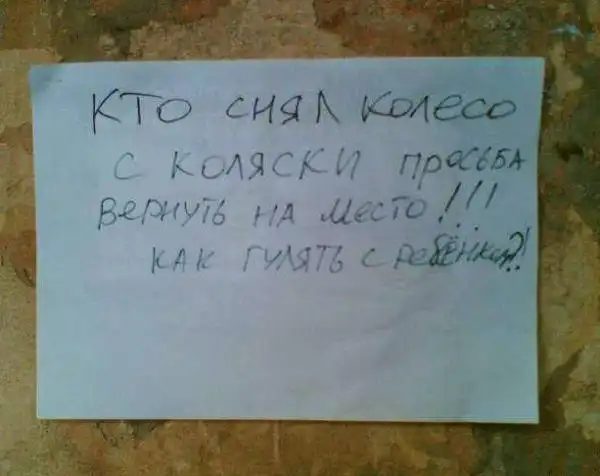 КТО СНЯЛ КОЛЕСО
С КОЛЯСКИ ПРОСЬБА
ВЕРНУТЬ НА МЕСТО!!!
КАК ГУЛЯТЬ С РЕБЁНКОМ?!